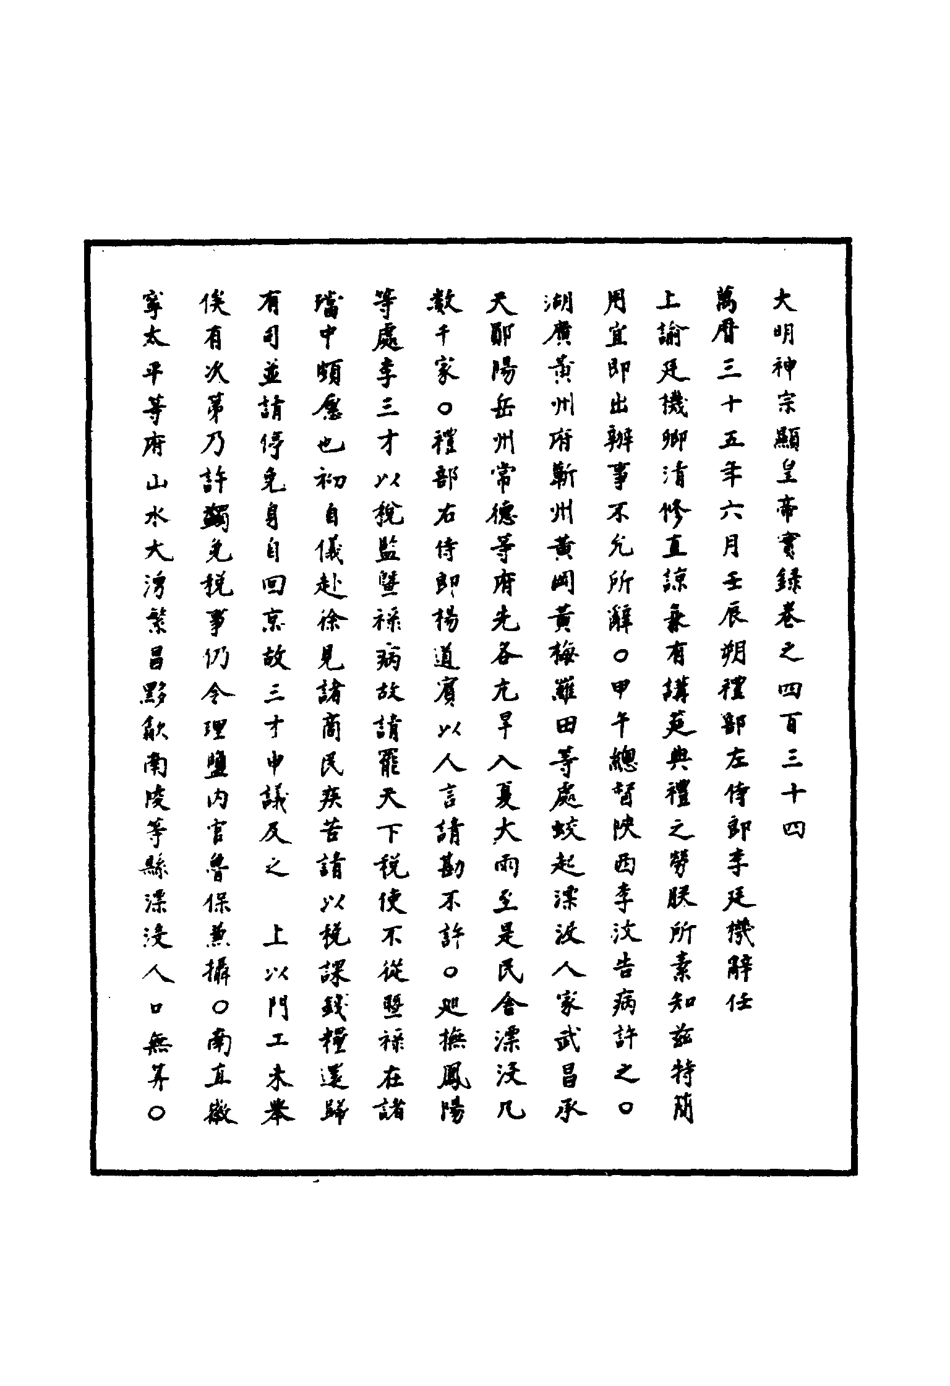 大明神宗顯皇帝實録卷之四百三十四
萬曆三十五年六月壬辰朔禮部左侍郎李廷機辭任
上諭廷機卿清修直諒兼有講筵典禮之勞朕所素知茲特簡
用宜即出辦事不允所辭○甲午總督陝西李汶告病許之○
湖廣黃州府蘄州黃岡黃梅羅田等處蛟起漂沒人家武昌承
天鄖陽岳州常德等府先各亢旱入夏大雨至是民舍漂沒几
數千家○禮部右侍郎楊道賓以人言請勘不許○廵撫鳳陽
等處李三才以稅監暨祿病故請罷天下稅使不從暨祿在諸
璫中頗愿也初自儀赴徐見諸商民疾苦請以稅課錢糧還歸
有司並請停免身自回京故三才申議及之　上以門工未舉
俟有次第乃許蠲免稅事仍令理鹽內官魯保兼攝○南直徽
寧太平等府山水大湧繁昌黟歙南陵等縣漂沒人口無筭○